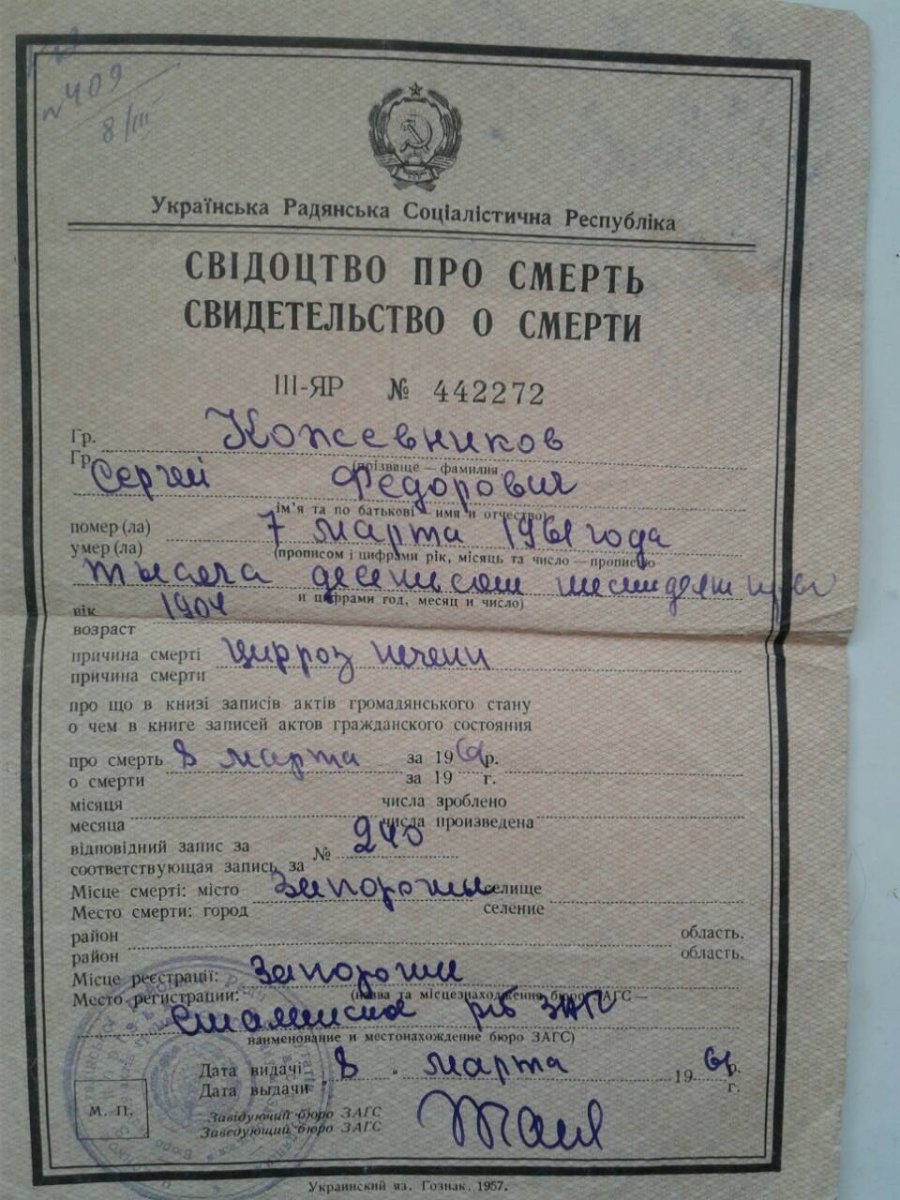 №409
8/III
Українська Радянська Соціалістична Республіка
СВІДОЦТВО ПРО СМЕРТЬ
СВИДЕТЕЛЬСТВО О СМЕРТИ
III-ЯР № 442272
Гр. Кожевников
Гр. (прізвище — фамилия
Сергей Федорович
ім'я та по батькові имя и отчество)
помер(ла) 7 марта 1961 года
умер(ла) (прописом і цифрами рік, місяць та число — прописью
тысяча девятьсот шестьдесят перво
и цифрами год, месяц и число)
вік 1904
возраст
причина смерті цирроз печени
причина смерти
про що в книзі записів актів громадянського стану
о чем в книге записей актов гражданского состояния
про смерть 8 марта за 1961 р.
о смерти за 19 г.
місяця числа зроблено
месяца числа произведена
відповідний запис за № 240
соответствующая запись за
Місце смерті: місто Запорожье селище
Место смерти: город селение
район область.
район область.
Місце реєстрації: Запорожье
Место регистрации: (назва та місцезнаходження бюро ЗАГС —
рб ЗАГС
наименование и местонахождение бюро ЗАГС)
Дата видачі 8. марта 1961 р.
Дата выдачи г.
М. П.
Завідуючий бюро ЗАГС
Заведующий бюро ЗАГС
Украинский яз. Гознак. 1957.